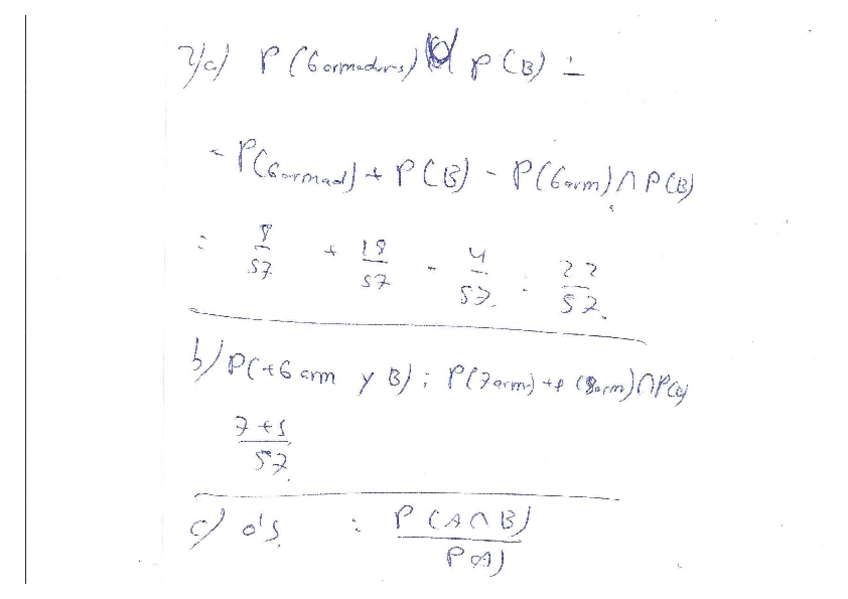 2/a) P (6 armaduras) P (B) =
= P(6 armad) + P(B) - P(6 arm) ∩ P(B)
= 8/57 + 18/57 - 4/57 = 22/57.
b) P(+6 arm y B) = P(7 arm) + P(8 arm) ∩ P(B)
7+5/57.
c) 0'5 = P(A∩B)/P(A)